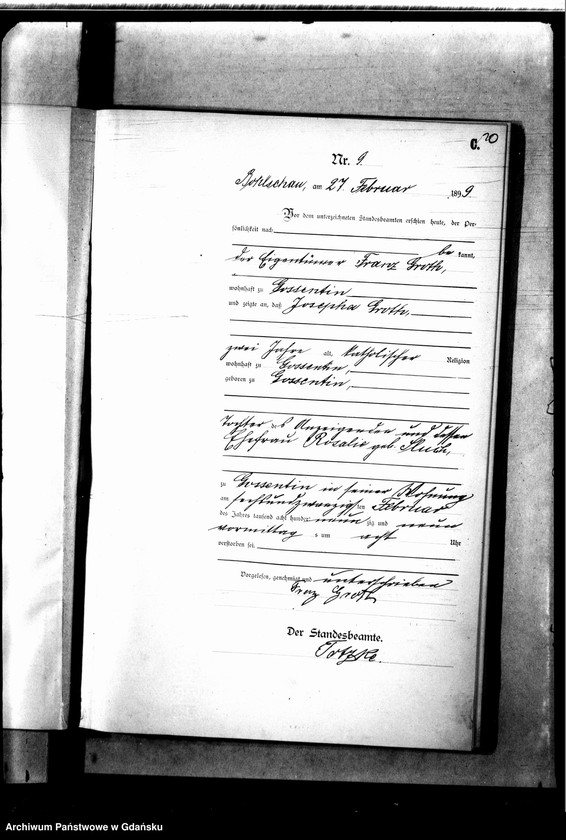 C. 20
Nr. 9.
Bohlschau, am 27. Februar 1899.
Vor dem unterzeichneten Standesbeamten erschien heute, der Per-
sönlichkeit nach
be kannt,
der Eigentümer Franz Groth,
wohnhaft zu Gossentin
und zeigte an, daß Josepha Groth,
zwei Jahre alt, katholischer Religion
wohnhaft zu Gossentin,
geboren zu Gossentin,
Tochter des Anzeigenden und dessen
Ehefrau Rosalie geb.
zu Gossentin in seiner Wohnung
am sechsundzwanzigsten Februar
des Jahres tausend acht hundert neun zig und neun
vormittags um acht Uhr
verstorben sei.
Vorgelesen, genehmigt und unterschrieben
Franz Groth
Der Standesbeamte.
Totzke.
Archiwum Państwowe w Gdańsku